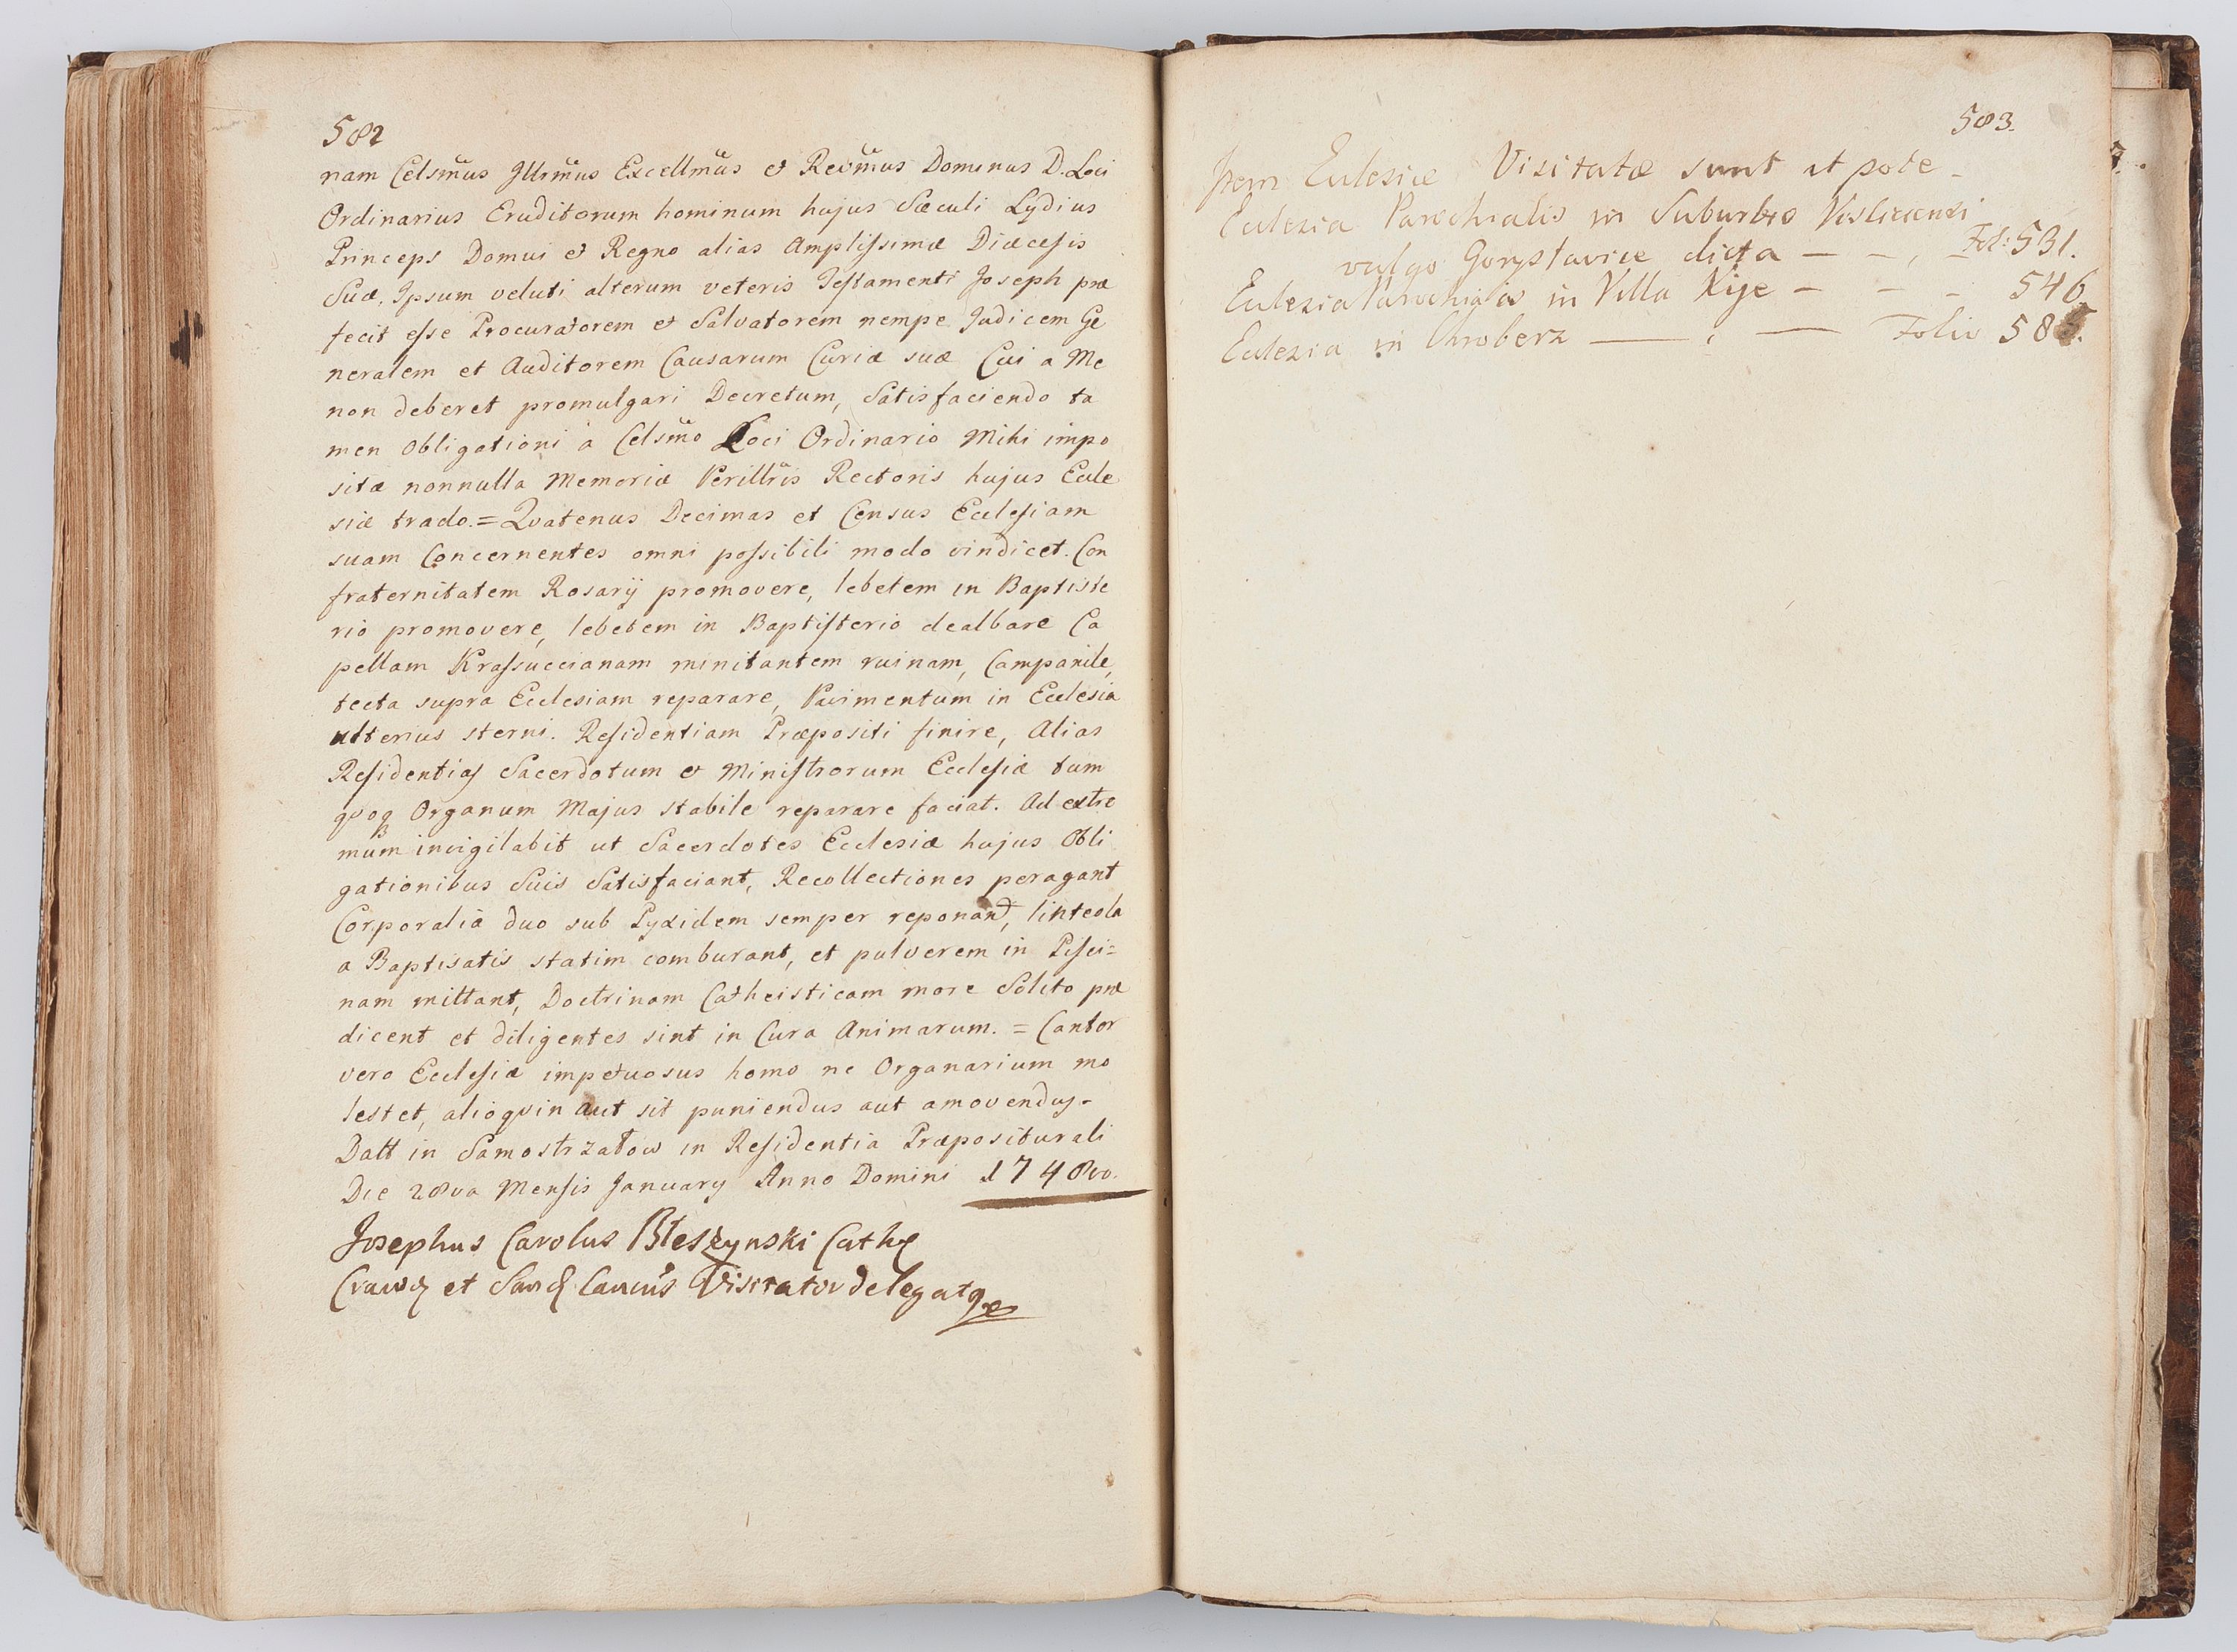 582
nam Celsm̃us Illrm̃us Excellm̃us & Revm̃us Dominus D. Loci
Ordinarius Eruditorum hominum hujus Sæculi Lydius
Princeps Domui & Regno alias Amplissimæ Diæcesis
Suæ, Ipsum veluti alterum veteris Testamenti Joseph præ
fecit esse Procuratorem & Salvatorem nempe Judicem Ge
neralem et Auditorem Causarum Curiæ suæ Cui a Me
non deberet promulgari Decretum, Satisfaciendo ta
men Obligationi a Celsm̃o Loci Ordinario Mihi impo
sitæ nonnulla Memoriæ Perillris Rectoris hujus Eccle
siæ trado. = Qvatenus Decimas et Census Ecclesiam
suam Concernentes omni possibili modo vindicet. Con
fraternitatem Rosarij promovere, lebetem in Baptiste
rio promovere, lebetem in Baptisterio dealbare Ca
pellam Krassuccianam minitantem ruinam, Campanile,
tecta supra Ecclesiam reparare, Pavimentum in Ecclesia
ulterius sterni. Residentiam Præpositi finire, Alias
Residentias Sacerdotum & Ministrorum Ecclesiæ tum
qvoq Organum Majus stabile reparare faciat. Ad extre
mum invigilabit ut Sacerdotes Ecclesiæ hujus Obli
gationibus Suis Satisfaciant, Recollectiones peragant
Corporalia duo sub Pyxidem semper reponant, linteola
a Baptisatis statim comburant, et pulverem in Pisci=
nam mittant, Doctrinam Catheisticam more Solito præ
dicent et diligentes sint in Cura Animarum. = Cantor
vero Ecclesiæ impetuosus homo ne Organarium mo
lestet, alioqvin aut sit puniendus aut amovendus-
Datt in Samostrzałow in Residentia Præpositurali
Die 28va Mensis January Anno Domini 1748vo.
Josephus Carolus Błeszynski Cath
et Visitator delegatq
583.
Item Eclesiæ Visitatæ sunt ut pote -
Eclezia Parochialis in Suburbio Visliciensi
vulgo Gorysławice dicta - - , - Fol: 531.
Eclezia Parochialis in Villa Kije - - - 546
Eclezia in Chroberz — , — Folio 585.